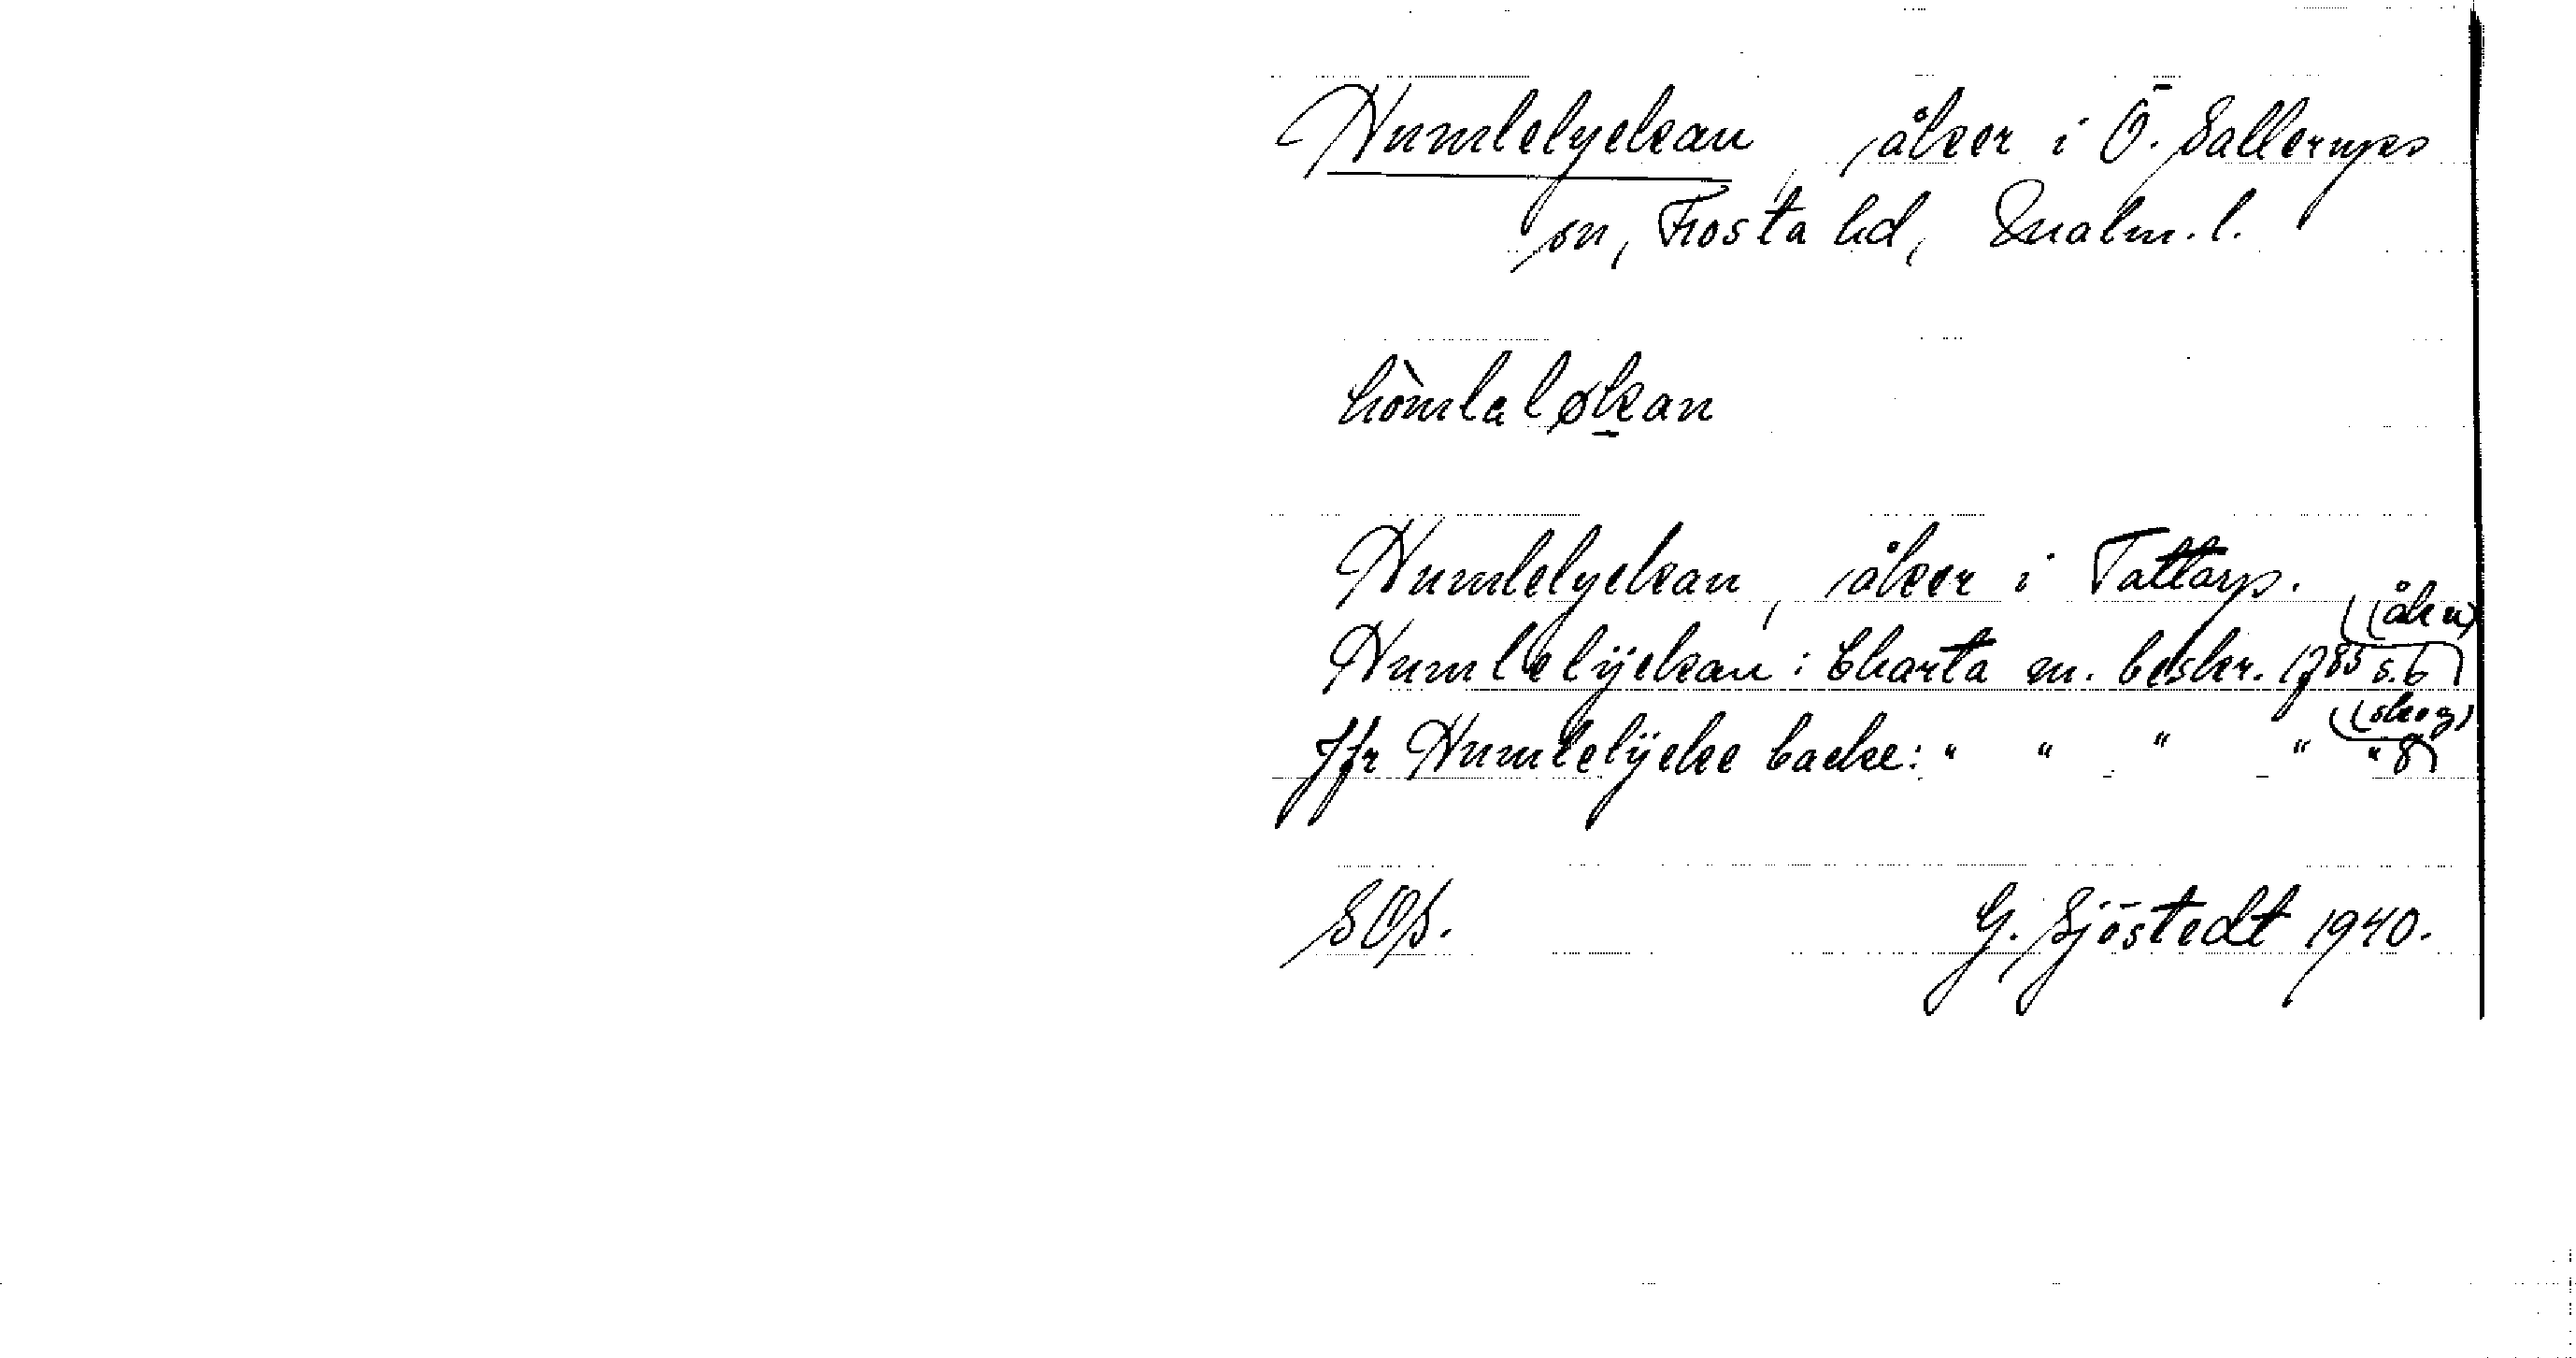 Humlelyckan, åker i Ö. Sallerups
sn, Frosta hd, Malm. l.
hòmlaløkan
Humlelyckan, åker i Tattarp.
(åker)
Humlelÿckan: Charta m. beskr. 1785 s. 6
(skog)
Jfr Humlelÿcke backe: " " " " " 8
SOS. G. Sjöstedt 1940.